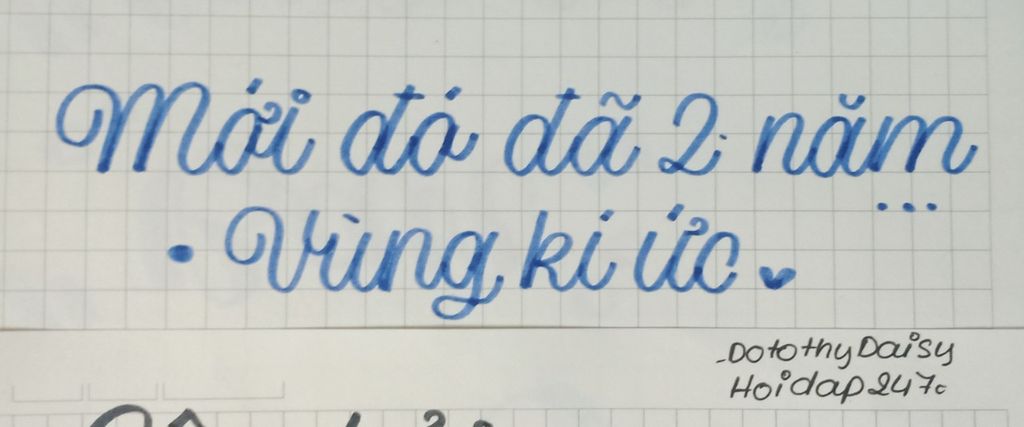 Mới đó đã 2 năm
...
• Vùng kí ức
-DotothyDaisy
Hoidap247c